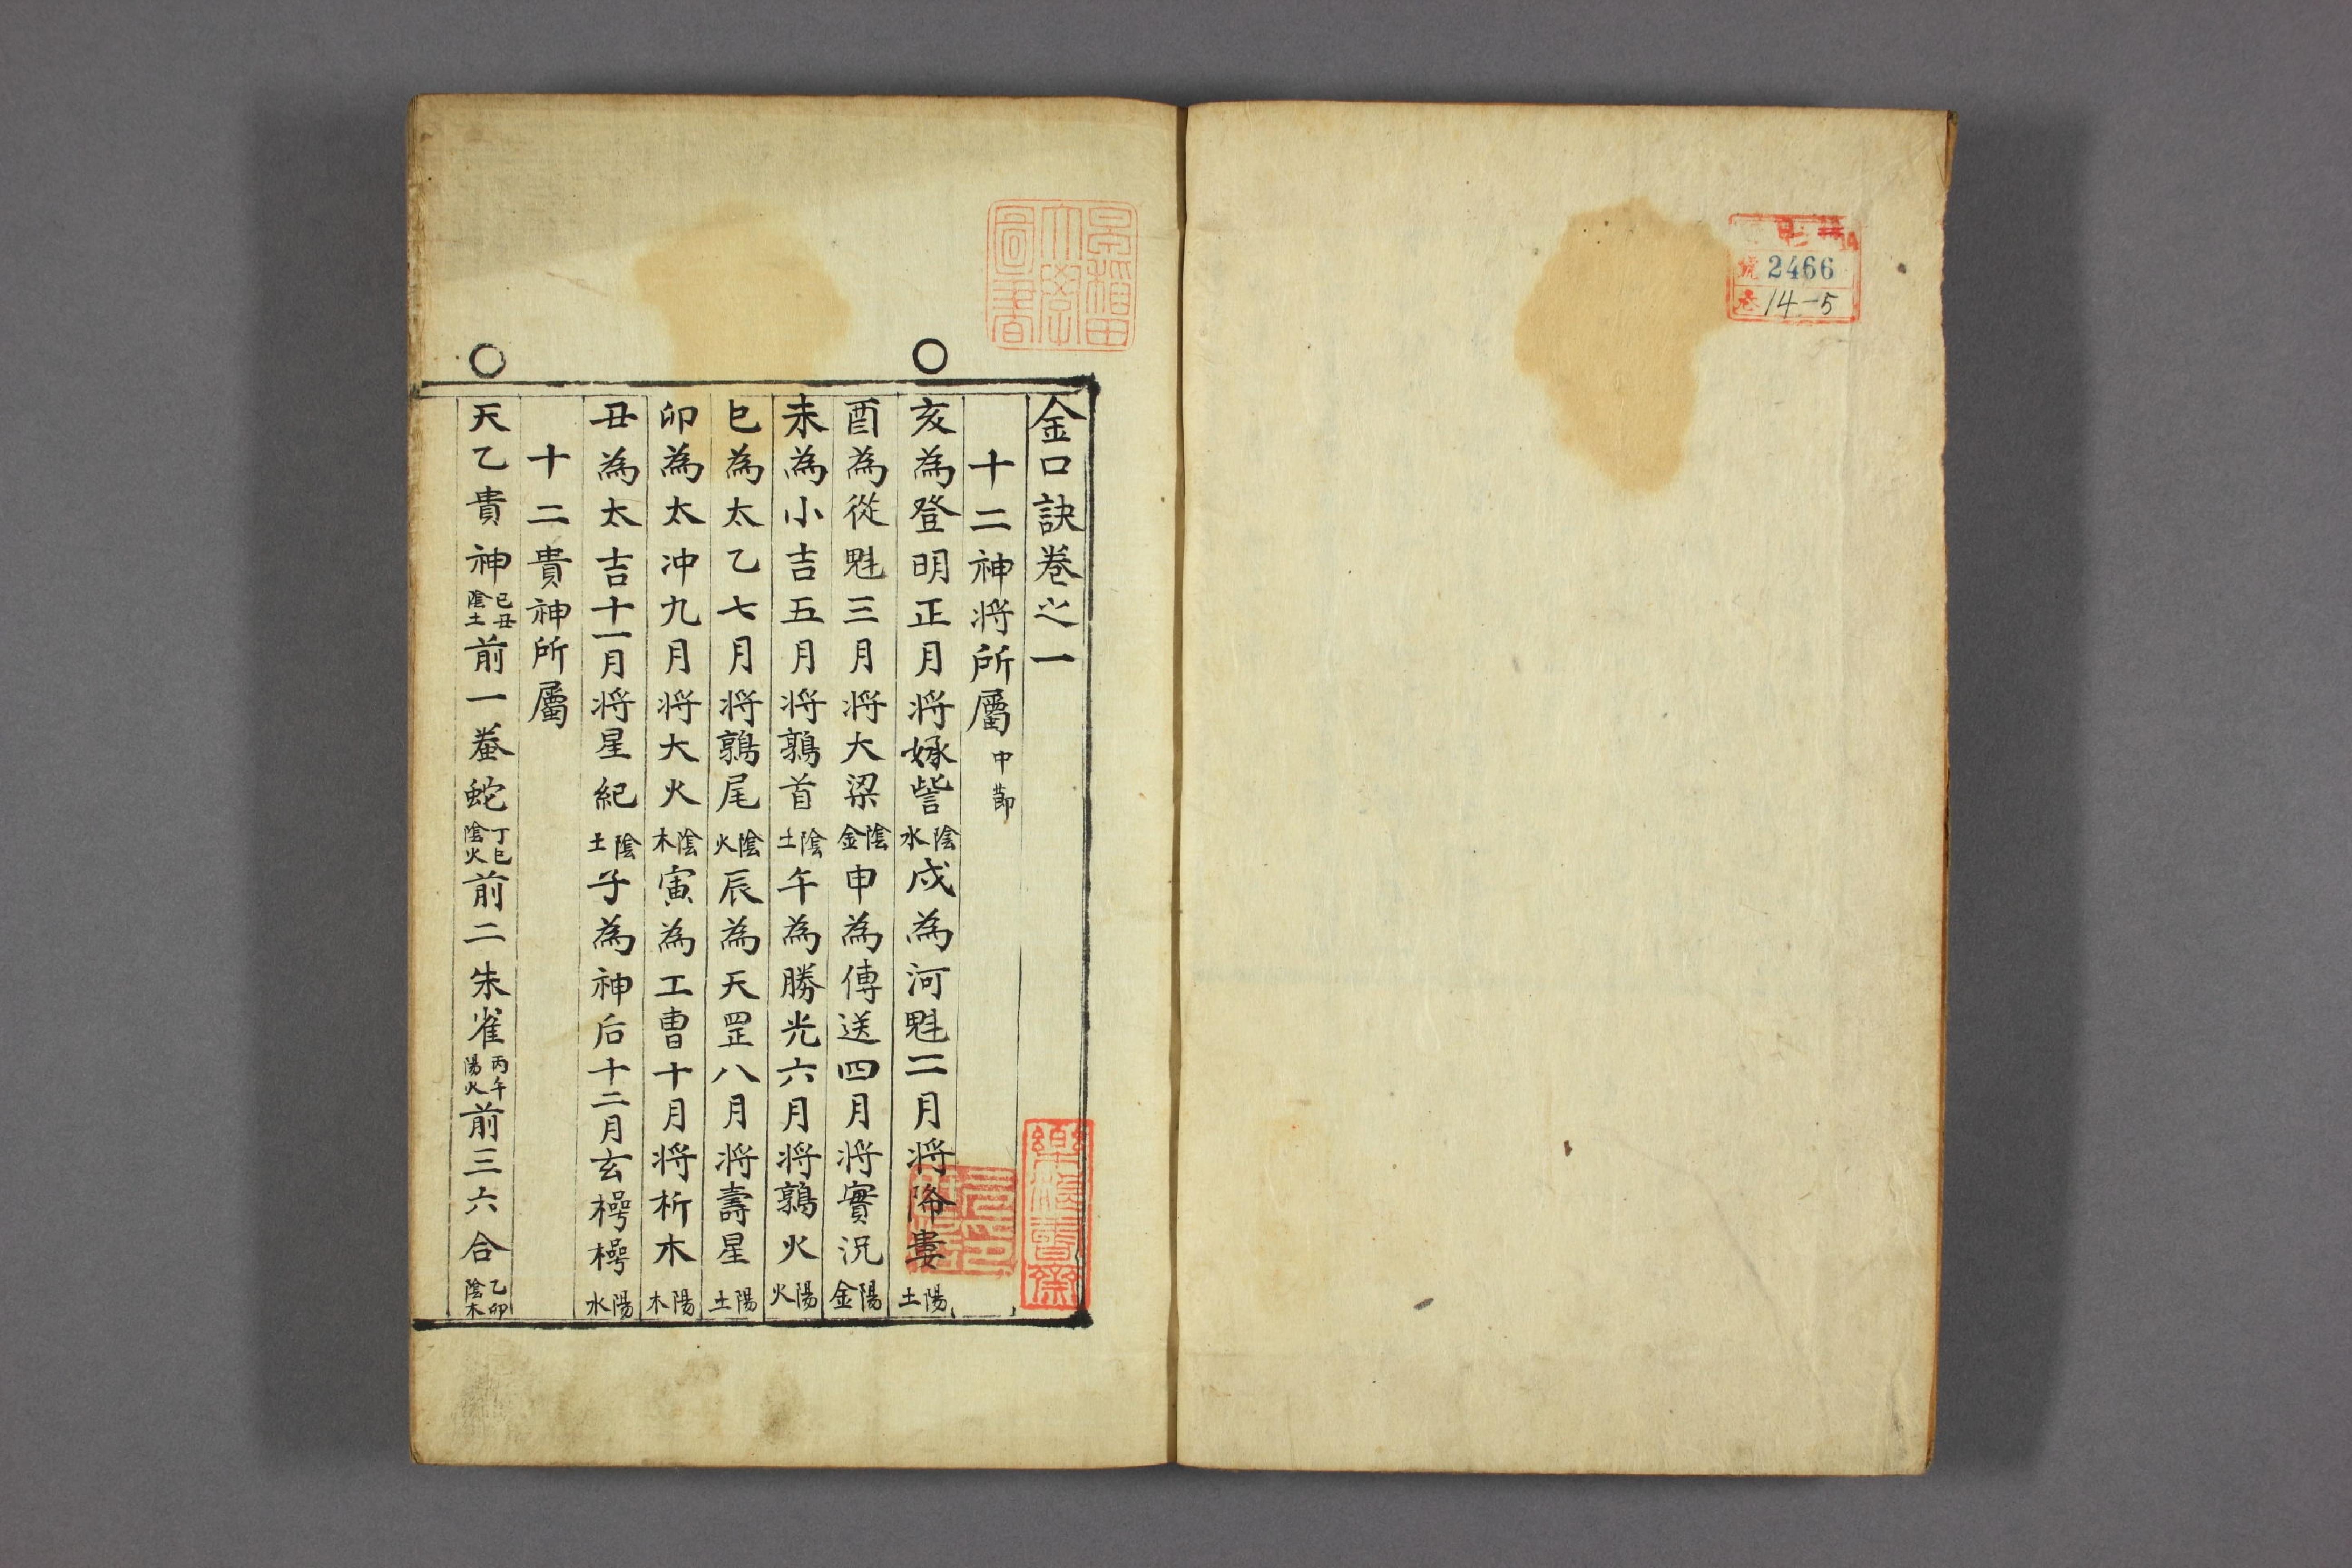 號 2466
卷 14-5
早稲田大學圖書
金口訣卷之一
十二神将所屬 中節
亥為登明正月将娵訾 陰水 戌為河魁二月将降婁 陽土
酉為從魁三月将大梁 陰金 申為傳送四月将實況 陽金
未為小吉五月将鶉首 陰土 午為勝光六月将鶉火 陽火
巳為太乙七月将鶉尾 陰火 辰為天罡八月将壽星 陽土
卯為太冲九月将大火 陰木 寅為工曹十月将析木 陽木
丑為太吉十一月将星紀 陰土 子為神后十二月玄枵枵 陽水
十二貴神所屬
天乙貴神 已丑陰土 前一螣蛇 丁巳陰火 前二朱雀 丙午陽火 前三六合 乙卯陰木